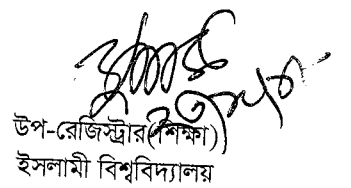 উপ-রেজিস্ট্রার(শিক্ষা)
ইসলামী বিশ্ববিদ্যালয়